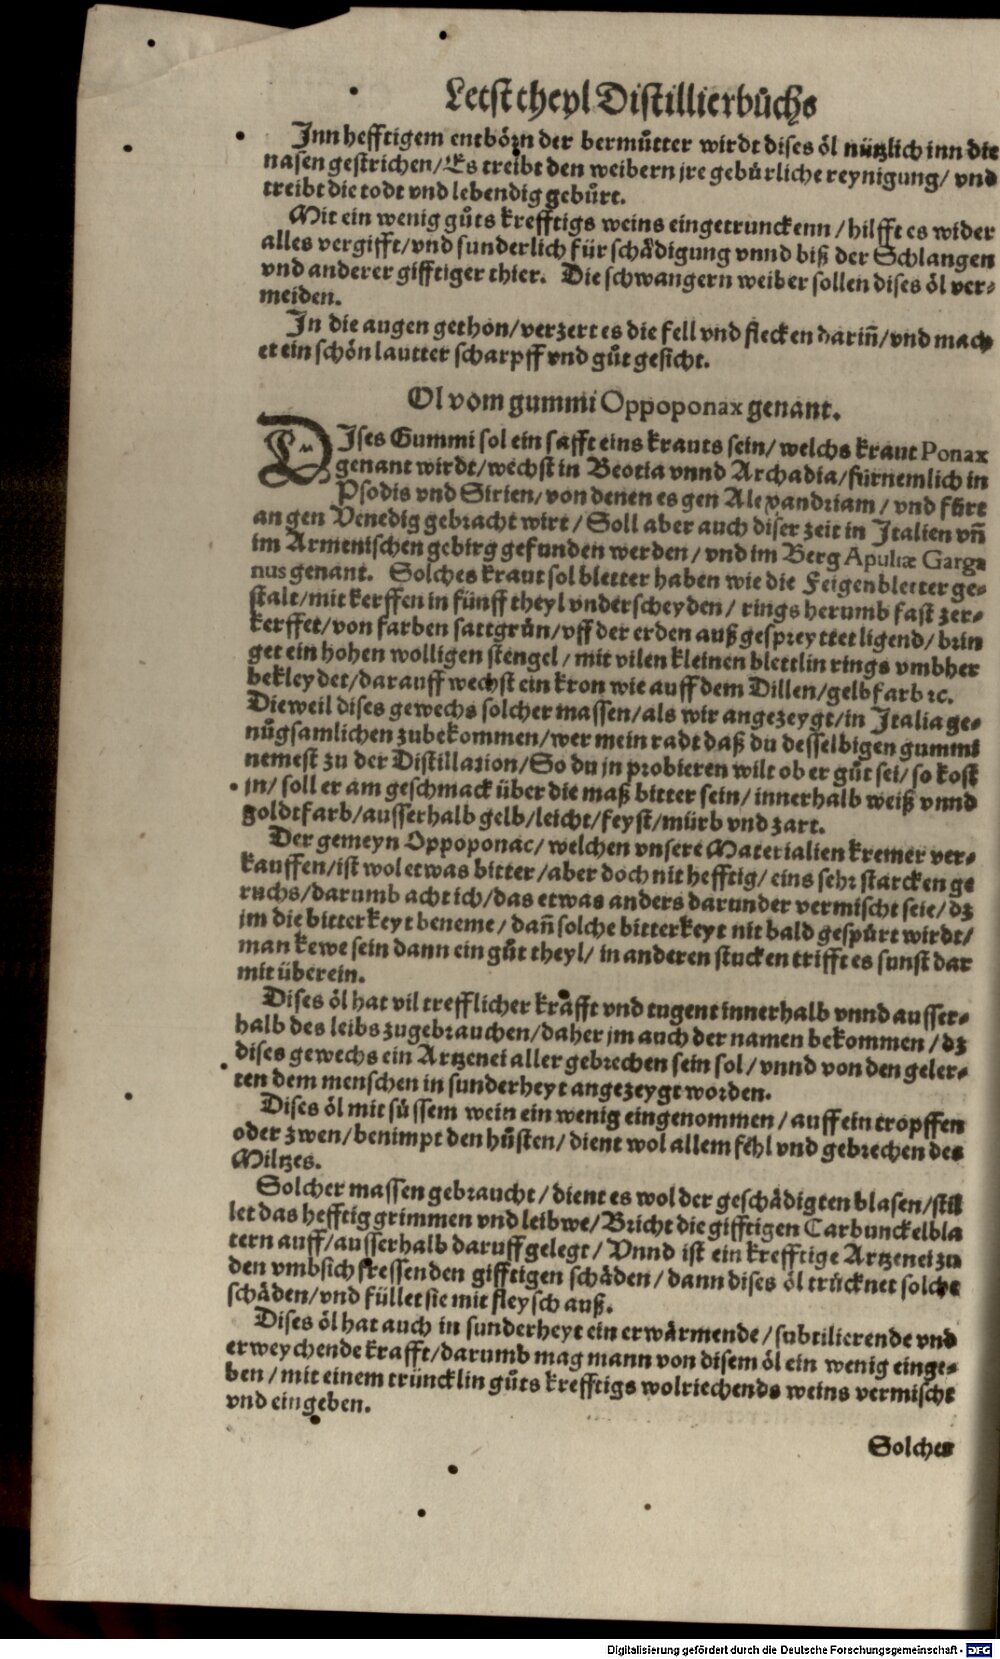 Letst theyl Distillierbůchs
Inn hefftigem entbörn der bermůtter wirdt dises öl nützlich inn die
nasen gestrichen/Es treibt den weibern jre gebürliche reynigung/ vnd
treibt die todt vnd lebendig gebürt.
Mit ein wenig gůts krefftigs weins eingetrunckenn/hilfft es wider
alles vergifft/vnd sunderlich für schädigung vnnd biß der Schlangen
vnd anderer gifftiger thier. Die schwangern weiber sollen dises öl ver⸗
meiden.
In die augen gethon/verzert es die fell vnd flecken darin̄/vnd mach
et ein schön lautter scharpff vnd gůt gesicht.
Ol vom gummi Oppoponax genant.
DIses Gummi sol ein safft eins krauts sein/ welchs kraut Ponax
genant wirdt/wechst in Beotia vnnd Archadia/fürnemlich in
Psodis vnd Sirien/von denen es gen Alexandriam/ vnd fürt
an gen Venedig gebracht wirt/ Soll aber auch diser zeit in Italien vn̄
im Armenischen gebirg gefunden werden/ vnd im Berg Apuliæ Garga
nus genant. Solches kraut sol bletter haben wie die Feigenbletter ge⸗
stalt/mit kerffen in fünff theyl vnderscheyden/ rings herumb fast zer⸗
kerffet/von farben sattgrün/vff der erden auß gespreyttet ligend/ brin
get ein hohen wolligen stengel/ mit vilen kleinen blettlin rings vmbher
bekleydet/darauff wechst ein kron wie auff dem Dillen/gelbfarb ꝛc.
Dieweil dises gewechs solcher massen/als wir angezeygt/in Italia ge⸗
nůgsamlichen zubekommen/wer mein radt daß du desselbigen gummi
nemest zu der Distillazion/So du jn probieren wilt ob er gůt sei/ so kost
jn/ soll er am geschmack über die maß bitter sein/ innerhalb weiß vnnd
goldtfarb/ausserhalb gelb/leicht/feyst/mürb vnd zart.
Der gemeyn Oppoponac/ welchen vnsere Materialien kremer ver⸗
kauffen/ist wol etwas bitter/aber doch nit hefftig/ eins sehr starcken ge
ruchs/darumb acht ich/das etwas anders darunder vermischt seie/dz
jm die bitterkeyt beneme/ dan̄ solche bitterkeyt nit bald gespürt wirdt/
man kewe sein dann ein gůt theyl/ in anderen stucken trifft es sunst dar
mit überein.
Dises öl hat vil trefflicher krafft vnd tugent innerhalb vnnd ausser⸗
halb des leibs zugebrauchen/daher jm auch der namen bekommen/dz
dises gewechs ein Artzenei aller gebrechen sein sol/vnnd von den geler⸗
ten dem menschen in sunderheyt angezeygt worden.
Dises öl mit süssem wein ein wenig eingenommen/ auff ein tropffen
oder zwen/benimpt den hůsten/ dient wol allem fehl vnd gebrechen des
Miltzes.
Solcher massen gebraucht/dient es wol der geschädigten blasen/stil
let das hefftig grimmen vnd leibwe/Bricht die gifftigen Carbunckelbla
tern auff/ausserhalb daruff gelegt/ Vnnd ist ein krefftige Artzenei zu
den vmbsich fressenden gifftigen schäden/dann dises öl trücknet solche
schäden/vnd füllet sie mit fleysch auß.
Dises öl hat auch in sunderheyt ein erwärmende/subtilierende vnd
erweychende krafft/darumb mag mann von disem öl ein wenig einge⸗
ben/mit einem trüncklin gůts krefftigs wolriechends weins vermischt
vnd eingeben.
Solches
Digitalisierung gefördert durch die Deutsche Forschungsgemeinschaft - DFG